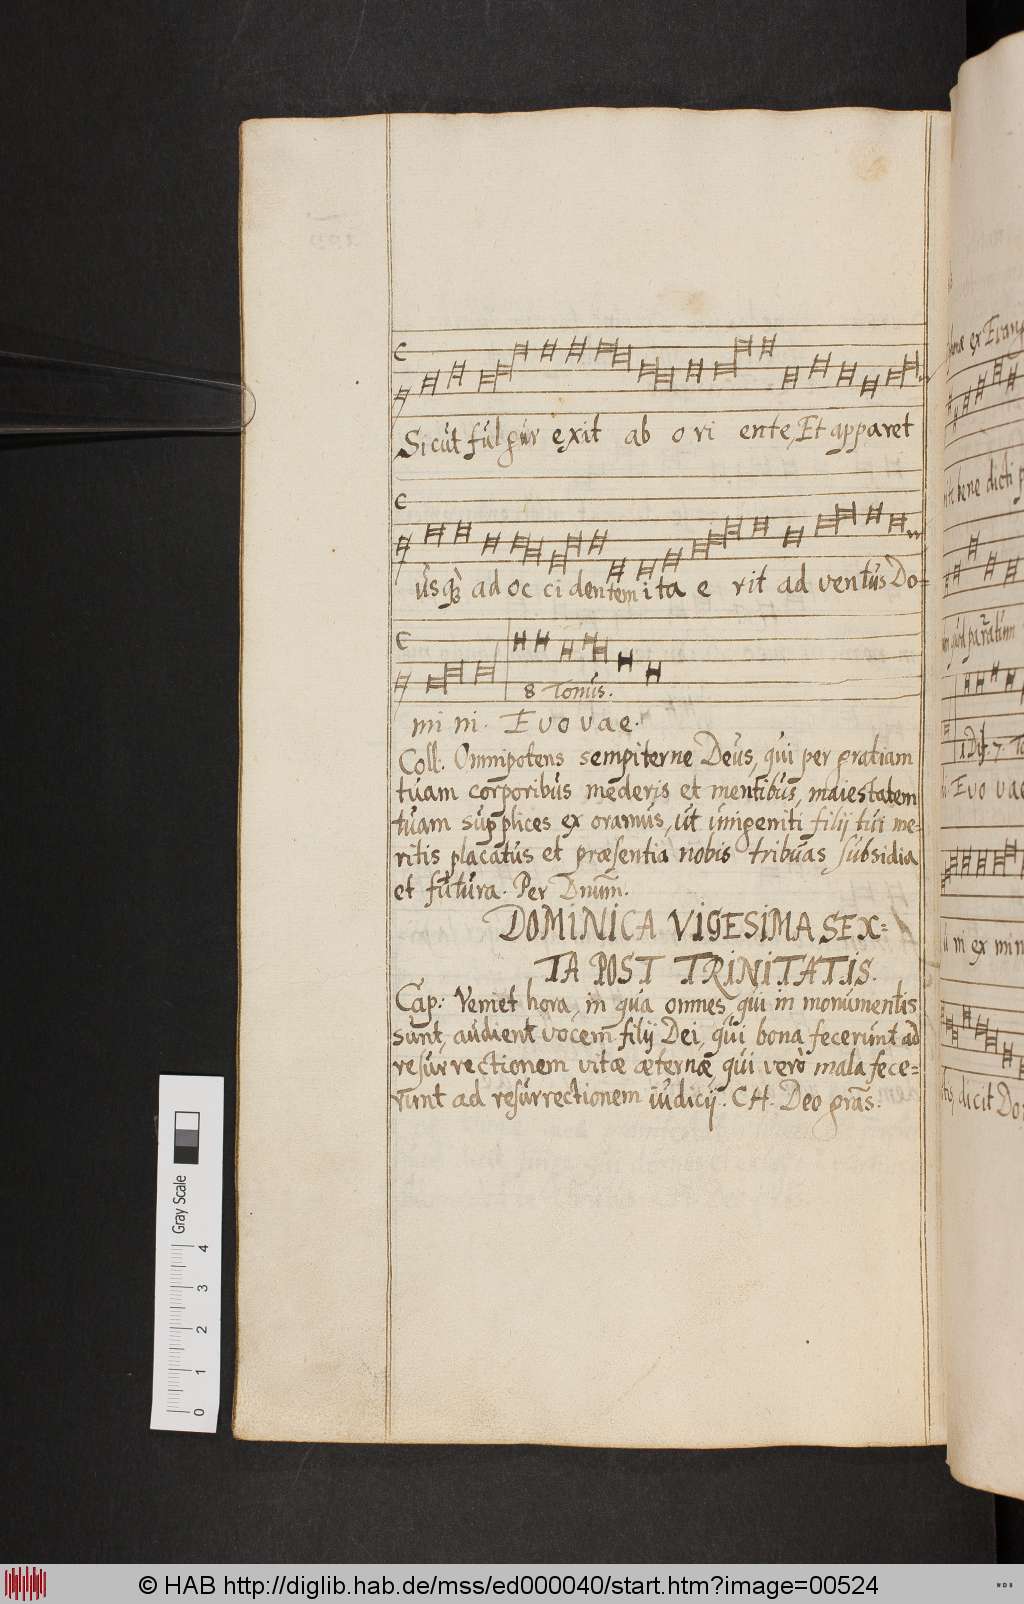 Sicut fulgur exit ab o ri ente, Et apparet
usq; ad oc ci dentem ita e rit ad ventus Do=
8 Tonus.
mi ni. E vo vae.
Coll: Omnipotens sempiterne Deus, qui per gratiam
tuam corporibus mederis et mentibus, maiestatem
tuam supplices ex oramus, ut unigeniti filij tui me=
ritis placatus et præsentia nobis tribuas subsidia
et futura. Per Dnum.
DOMINICA VIGESIMA SEX=
TA POST TRINITATIS.
Cap: Veniet hora, in qua omnes qui in monumentis
sunt, audient vocem filij Dei, qui bona fecerunt ad
resurrectionem vitæ æternæ, qui verò mala fece=
runt ad resurrectionem iudicij. CH. Deo gras:
ex Evan
bene dicti
Evo vae
ni ex mi n
dicit Do
Gray Scale
4
3
2
1
0
© HAB http://diglib.hab.de/mss/ed000040/start.htm?image=00524